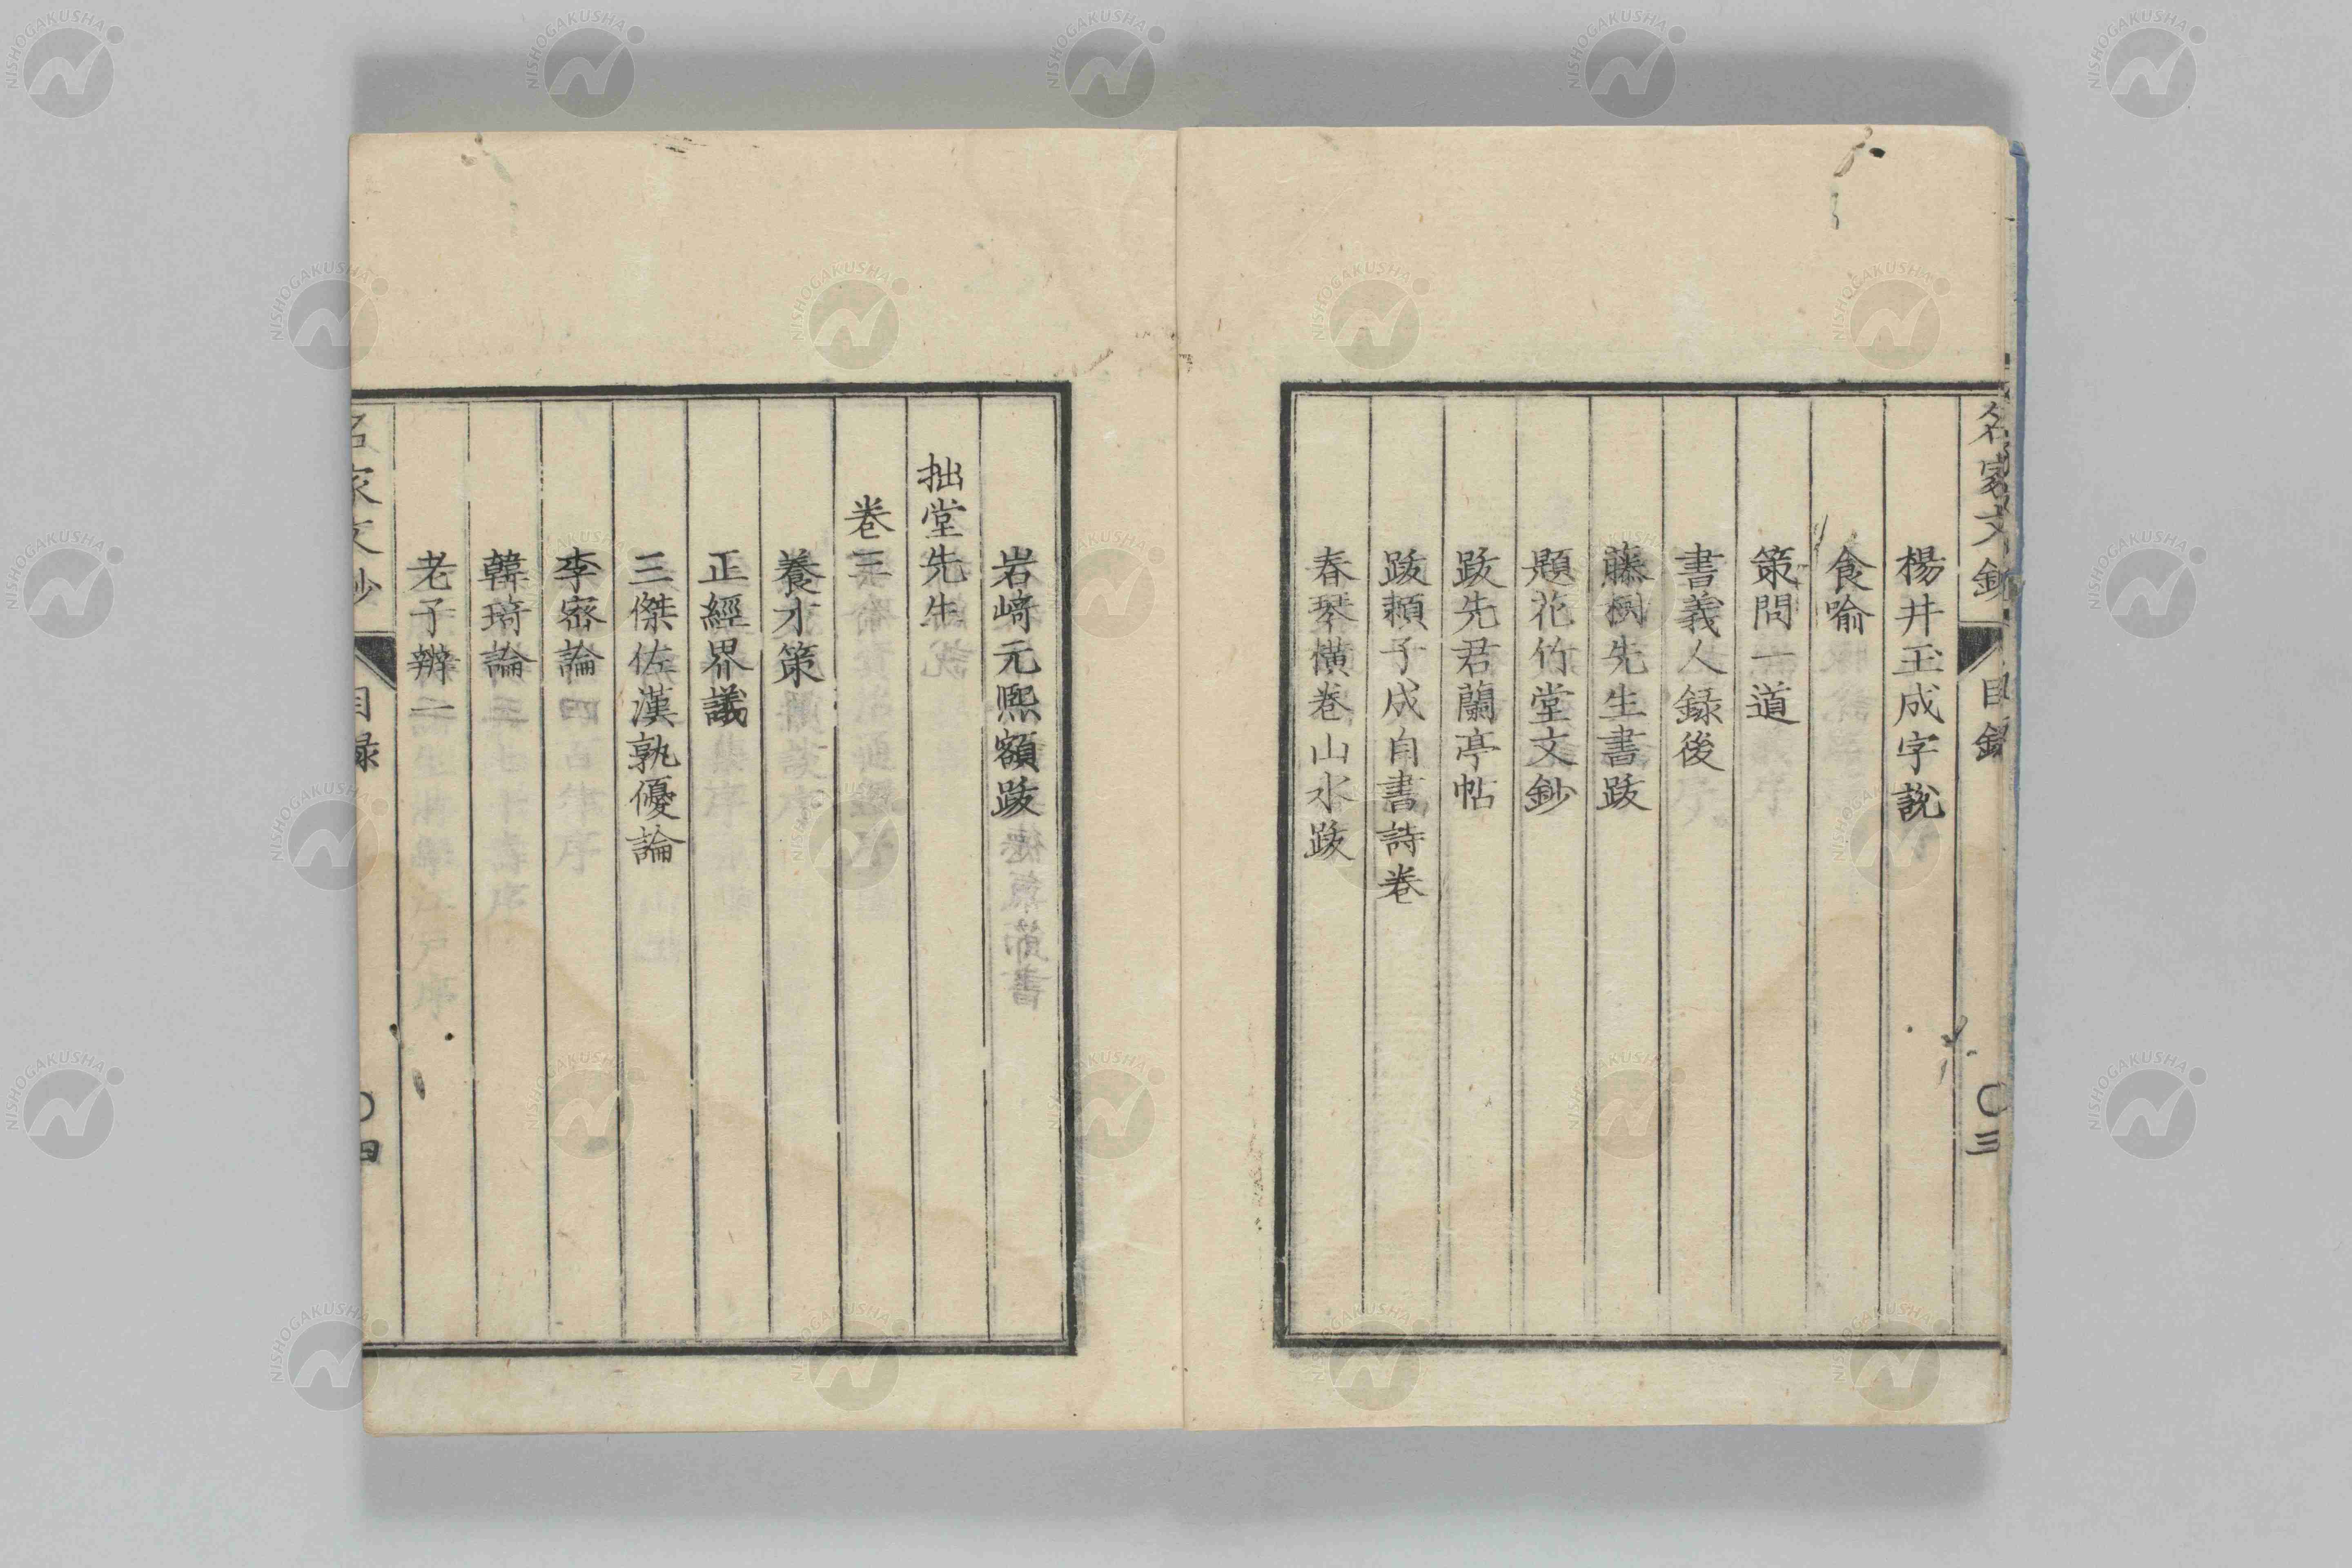 名家文鈔 目錄 〇三
楊井玉成字説
食喻
策問一道
書義人録後
藤樹先生書跋
題花竹堂文鈔
跋先君蘭亭帖
跋頼子成自書詩卷
春琴橫卷山水跋
岩﨑元熙額跋
拙堂先生
卷三
養才策
正經界議
三傑佐漢孰優論
李密論
韓琦論
老子辨一
名家文鈔 目録 〇四
NISHOGAKUSHA